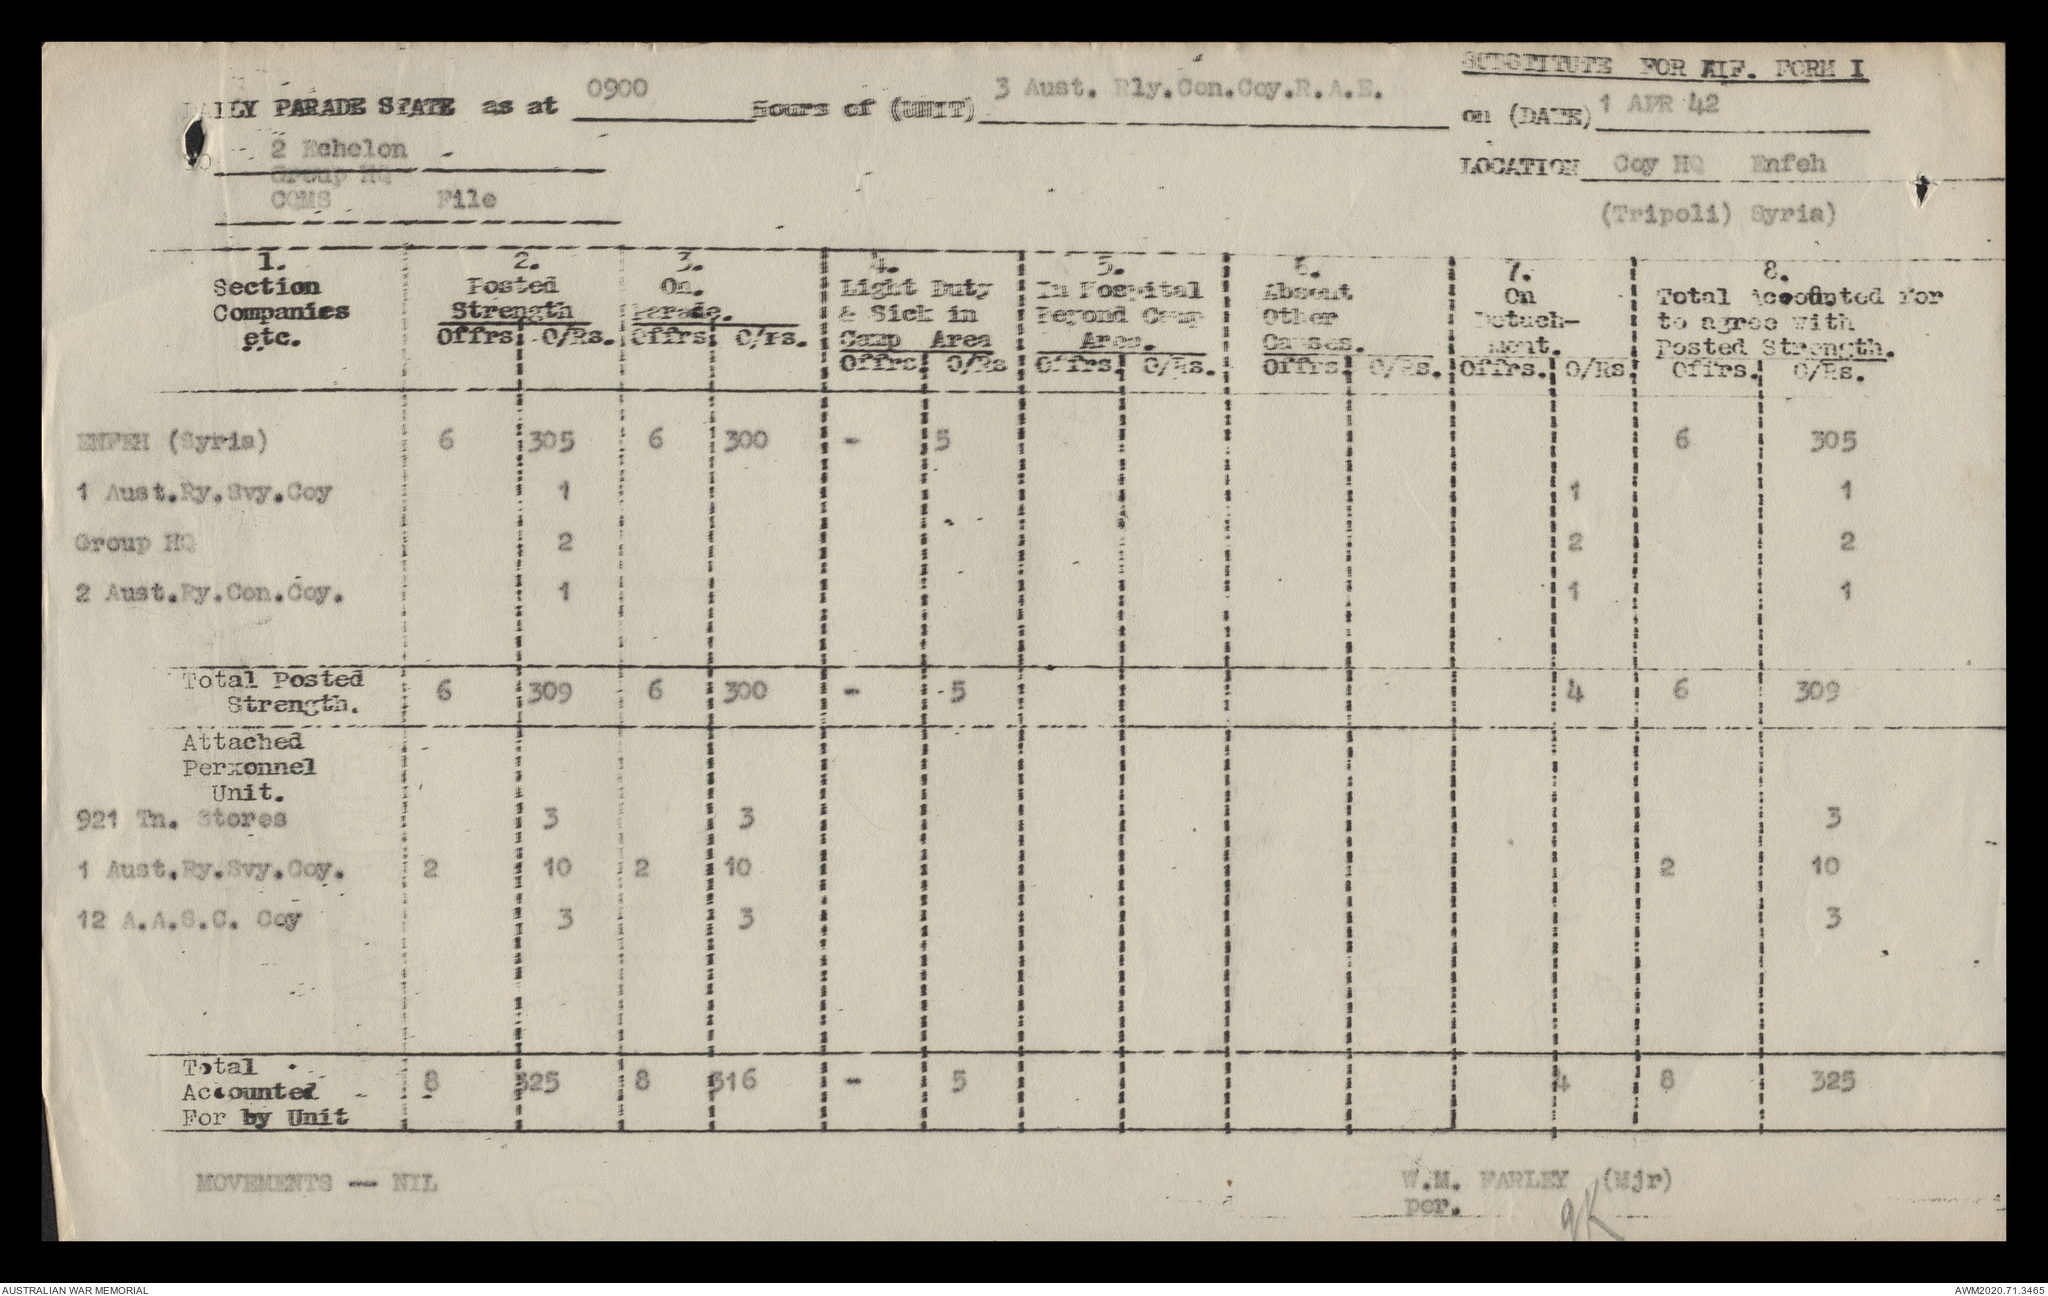 SUBSTITUTE FOR AIF. FORM I
DAILY PARADE STATE as at 0900 Hours of (UNIT) 3 Aust. Rly.Con.Coy.R.A.E. on (DATE) 1 APR 42
TO 2 Echelon
Group HQ
CQMS File
LOCATION Coy HQ Enfeh
(Tripoli) Syria)
1. Section Companies etc. 2. Posted Strength 3. On. Parade. 4. Light Duty & Sick in Camp Area 5. In Hospital Beyond Camp Area. 6. Absent Other Causes. 7. On Detach-ment. 8. Total Accounted For to agree with Posted Strength.
Offrs. O/Rs. Offrs O/rs. Offrs. O/Rs Offrs. O/Rs. Offrs. O/Rs. Offrs. O/Rs. Offrs. O/Rs.
ENFEH (Syria) 6 305 6 300 - 5 6 305
1 Aust.Ry.Svy.Coy 1 1 1
Group HQ 2 2 2
2 Aust.Ry.Con.Coy. 1 1 1
Total Posted
Strength. 6 309 6 300 - 5 4 6 309
Attached
Perxonnel
Unit.
921 Tn. Stores 3 3 3
1 Aust.Ry.Svy.Coy. 2 10 2 10 2 10
12 A.A.S.C. Coy 3 3 3
Total
Accounted 8 325 8 316 - 5 4 8 325
For by Unit
MOVEMENTS -- NIL
W.M. FARLEY (Mjr)
per.
AUSTRALIAN WAR MEMORIAL
AWM2020.71.3465